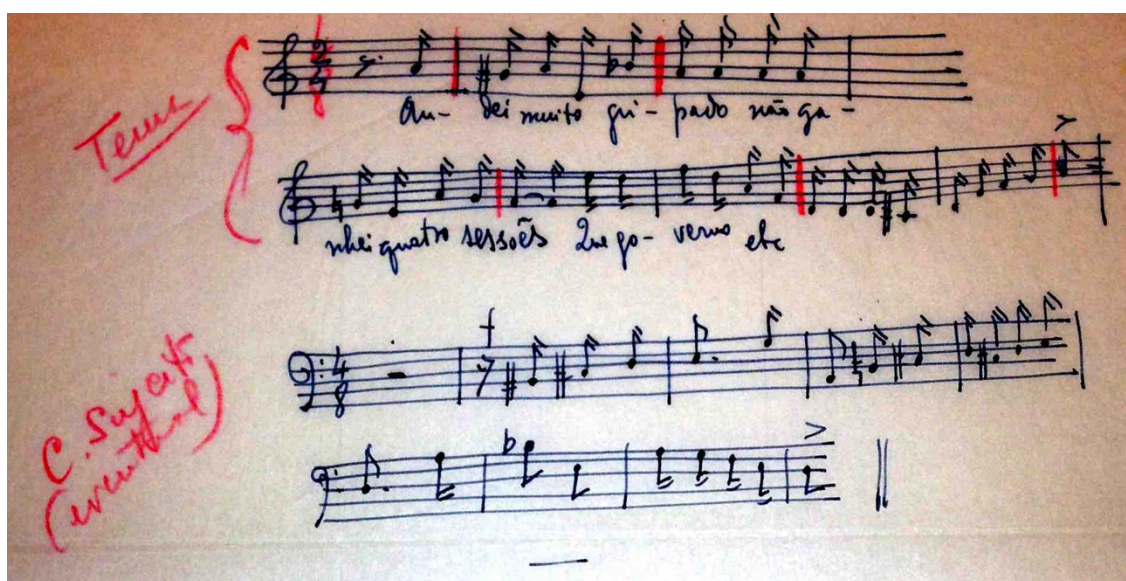 Tema
2
4
An- dei muito gri- pado não ga-
nhei quatro sessões Que go- verno etc
C. Sujeito
(eventual)
4
8